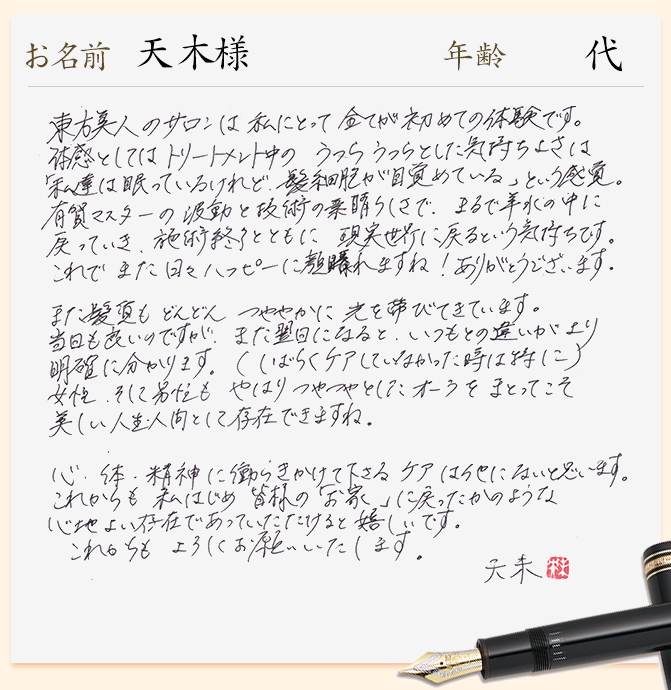 お名前 天木様 年齢 代
東方美人のサロンは私にとって全てが初めての体験です。
体感としてはトリートメント中の うっらうっらとした気持ちよさは
「私達は眠っているけれど、髪細胞が目覚めている」という感覚。
有賀マスターの波動と技術の素晴らしさで、まるで羊水の中に
戻っていき、施術終了とともに 現実世界に戻るという気持ちです。
これでまた日々ハッピーに頑張れますね！ありがとうございます。
また髪質も どんどん つややかに光を帯びてきています。
当日も良いのですが、また翌日になると、いつもとの違いがより
明確に分かります。（しばらくケアしていなかった時は特に）
女性、そして男性も やはりつやつやとしたオーラをまとってこそ
美しい人生・人間として存在できますね。
心・体・精神に働らきかけて下さるケアは他にないと思います。
これからも 私はじめ 皆様の「お家」に戻ったかのような
心地よい存在であっていただけると嬉しいです。
これからも よろしくお願いいたします。
天木